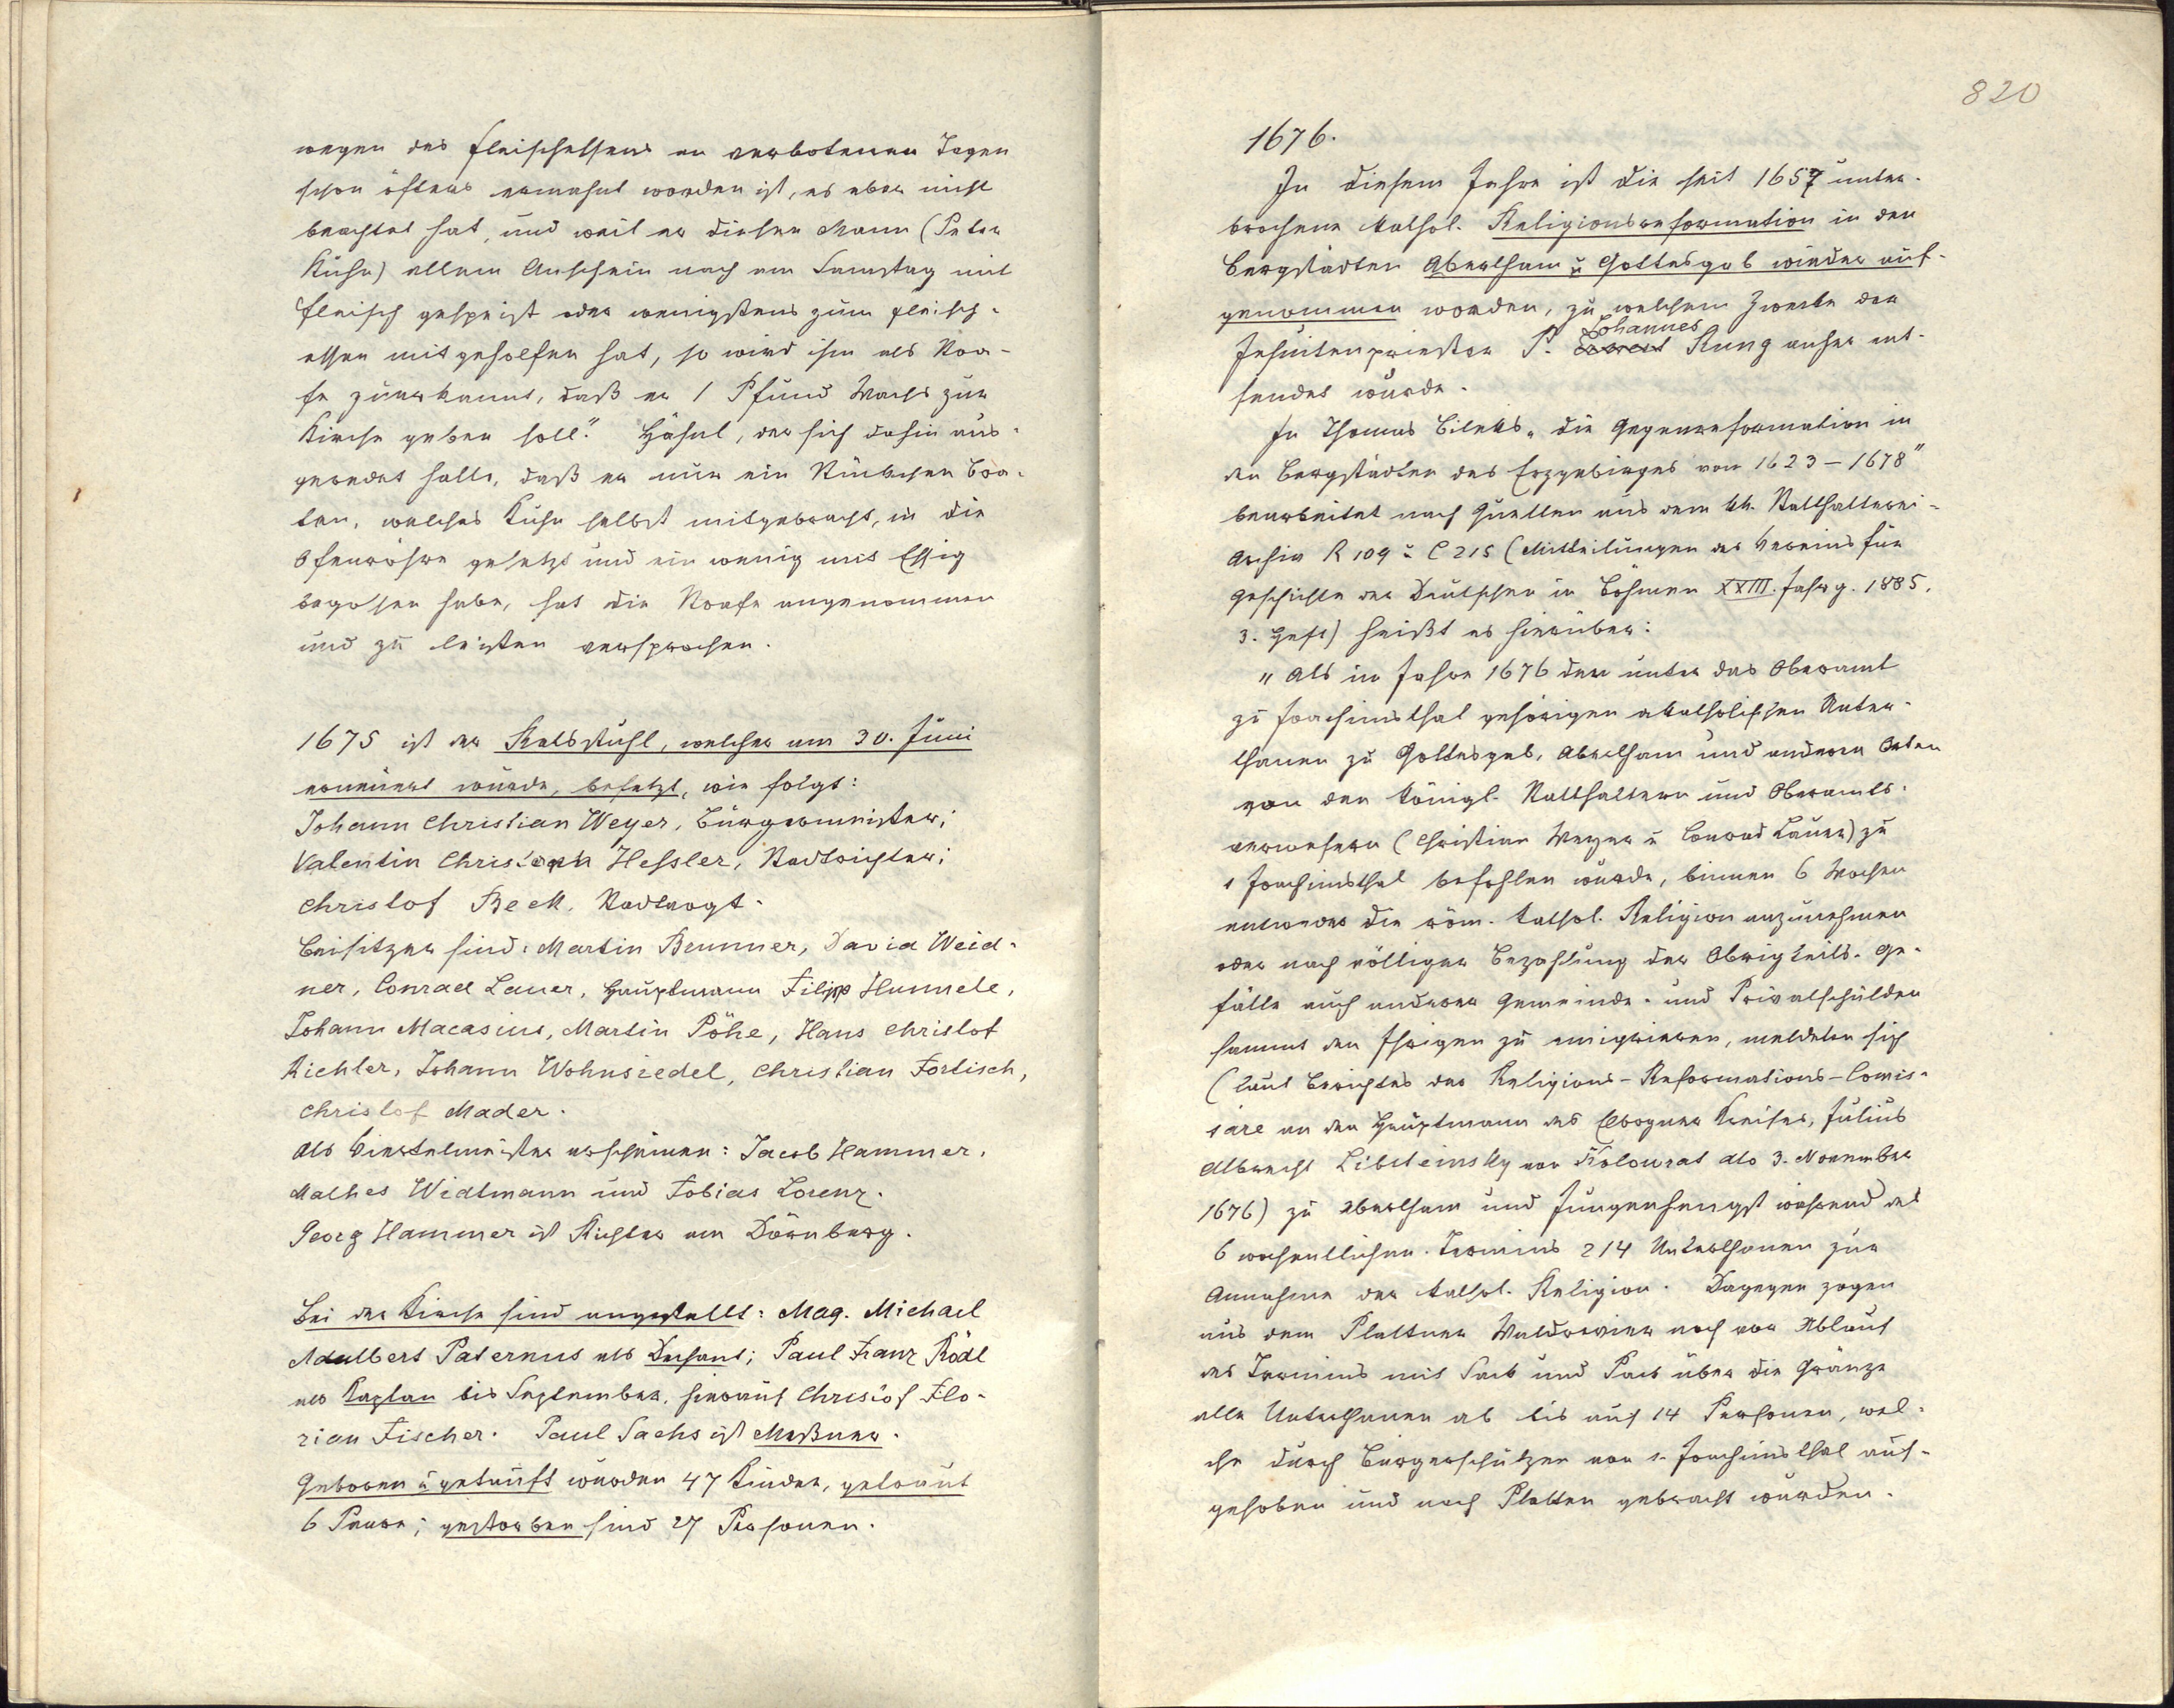 wegen des Fleischessens an verbotenen Tagen
schon öfters ermahnt worden ist, es aber nicht
beachtet hat, und weil er diesen Mann (Peter
Kuhn) allem Anschein nach am Samstag mit
Fleisch gespeist oder wenigstens zum Fleisch-
essen mitgeholfen hat, so wird ihm als Stra-
fe zuerkannt, daß er 1 Pfund Wachs zur
Kirche geben soll." Hähnl, der sich dahin aus-
geredet hatte, daß er nur ein Stückchen Bra-
ten, welches Kuhn selbst mitgebracht, in die
Ofenröhre gesetzt und ein wenig mit Essig
begossen habe, hat die Strafe angenommen
und zu leisten versprochen.
1675 ist der Ratsstuhl, welcher am 30. Juni
erneuert wurde, besetzt, wie folgt:
Johann Christian Weyer, Bürgermeister;
Valentin Christoph Hessler, Stadtrichter;
Christof Beck, Stadtvogt.
Beisitzer sind: Martin Brunner, David Weid-
ner, Conrad Lauer, Hauptmann Filipp Hunnele,
Johann Macasius, Martin Pöhe, Hans Christof
Richter, Johann Wohnsiedel, Christian Fortisch,
Christof Mader.
Als Viertelmeister erscheinen: Jacob Hammer,
Mathes Widtmann und Tobias Lorenz.
Georg Hammer ist Richter am Dörnberg.
Bei der Kirche sind angestellt: Mag. Michael
Adalbert Paternus als Dechant; Paul Franz Rödl
als Kaplan bis September, hierauf Christof Flo-
rian Fischer. Paul Sachs ist Meßner.
Geboren u getauft wurden 47 Kinder, getraut
6 Paare; gestorben sind 27 Personen.
820
1676.
In diesem Jahre ist die seit 1657 unter-
brochene kathol. Religionsreformation in den
Bergstädten Abertham u Gottesgab wieder auf-
genommen worden, zu welchem Zwecke der
Johannes
Jesuitenpriester P. Rung anher ent-
sendet wurde.
In Thomas Bileks „Die Gegenreformation in
den Bergstädten des Erzgebirges von 1623–1678"
bearbeitet nach Quellen aus dem kk. Statthalterei-
Archiv R 109 u C 215 (Mitteilungen des Vereins für
Geschichte der Deutschen in Böhmen XXIII. Jahrg. 1885,
3. Heft) heißt es hierüber:
„Als im Jahre 1676 den unter das Oberamt
zu Joachimsthal gehörigen akatholischen Unter-
thanen zu Gottesgab, Abertham und anderen Orten
von den königl. Statthaltern und Oberamts-
verwesern (Christian Weyer u Conrad Lauer) zu
s Joachimsthal befohlen wurde, binnen 6 Wochen
entweder die röm. kathol. Religion anzunehmen
oder nach völliger Bezahlung der Obrigkeits-Ge-
fälle auch anderer Gemeinde- und Privatschulden
sammt den Ihrigen zu emigrieren, meldeten sich
(laut Berichtes der Religions-Reformations-Comis-
säre an den Hauptmann des Elbogner Kreises, Julius
Albrecht Libsteinsky von Kolowrat dto 3. November
1676) zu Abertham und Jungenhengst während des
6 wochentlichen Termins 214 Unterthanen zur
Annahme der kathol. Religion. Dagegen zogen
aus dem Plattner Waldrevier noch vor Ablauf
des Termins mit Sack und Pack über die Gränze
alle Unterthanen ab bis auf 14 Personen, wel-
che durch Bürgerschützen von s. Joachimsthal auf-
gehoben und nach Platten gebracht wurden.